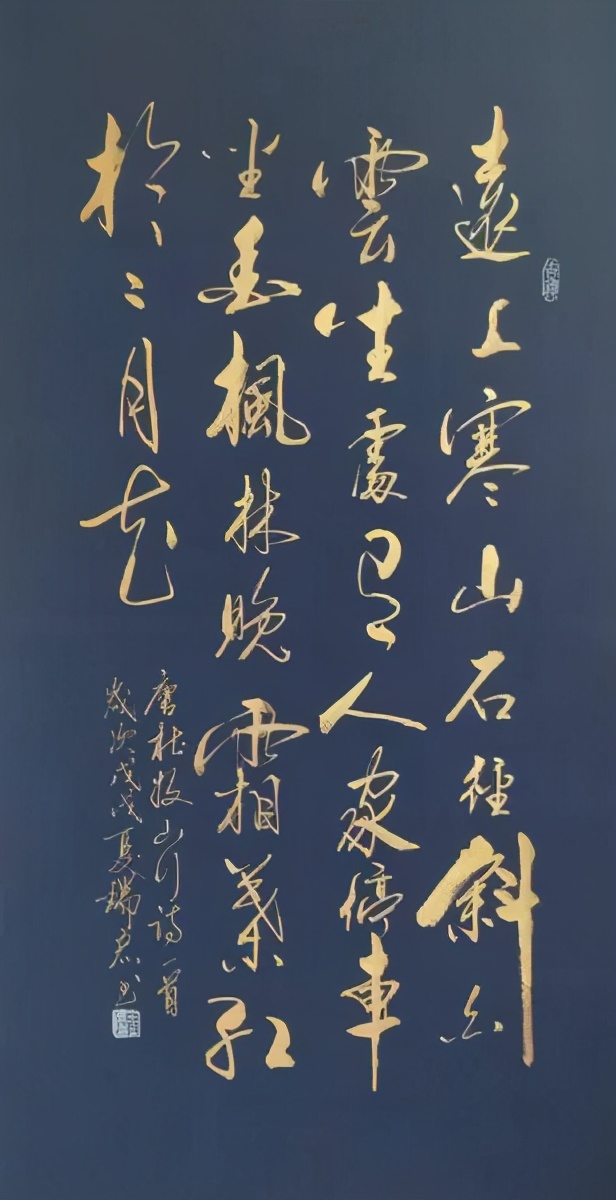 遠上寒山石徑斜白
雲生處有人家停車
坐愛楓林晚霜葉紅
於二月花
唐杜牧山行詩一首
歲次戊戌夏瑞君书